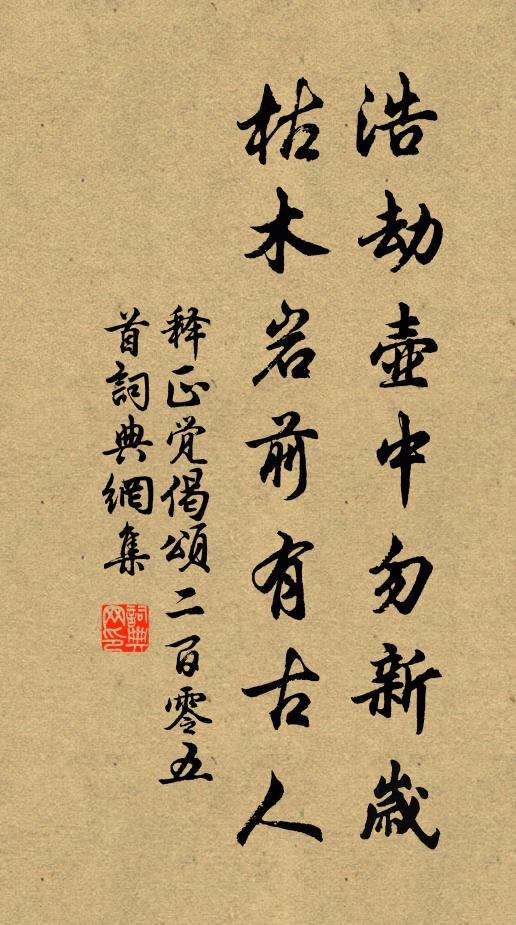 浩劫壺中勿新歲
枯木岩前有古人
释正覚偈頌二百零五
首詞典網集
詞典網印